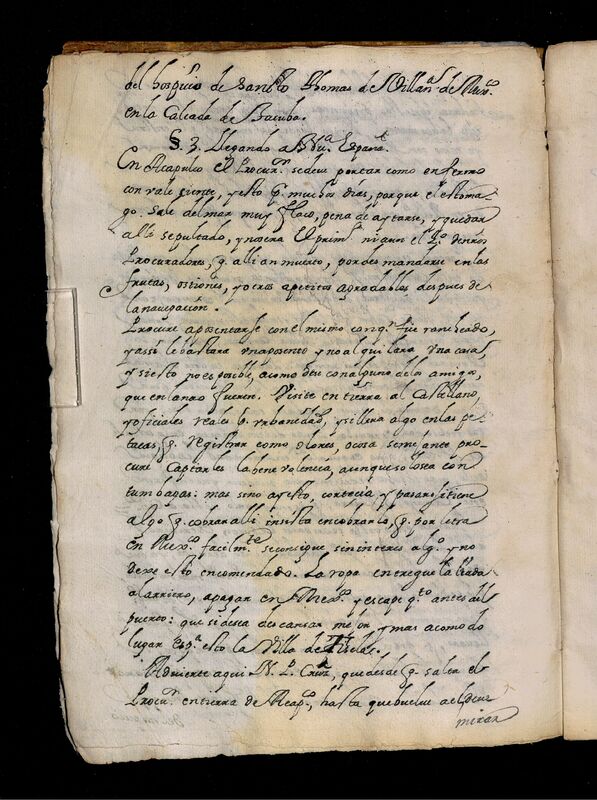 del hospicio de Sancto Thomas de Villan.ª de Mex.co
en la Calçada de Tacuba.
§. 3. Llegando a Nu.ª España.
En Acapulco el Procur.or se deve portar como enfermo
convaleziente, y esto p.r muchos dias, porque el estoma-
go. sale del mar muy flaco, pena de aytarse, y quedar
alli sepultado, y no sera El prim.o ni aun el 2.º de nros
Procuradores, q. alli an muerto, por desmandarse en las
frutas, ostiones, y otros apetitos agradables despues de
la navegacion.
Procure aposentarse con el mismo con q.n fue rancheado,
y assi le bastara un aposento y no alquilara una casa,
y si esto no es posible, acomodese con alguno de los amigos,
que en la nao fueron. Visite en tierra al Castellano,
y oficiales reales p.r urbanidad, y si lleva algo en las pe-
tacas, q. registrar como olores, o cosa semejante pro-
cure Captarles la benevolencia, aunque solo sea con
tumbagas: mas sino ay esto, cortecia y passar. si tiene
algo q. cobrar alli insista en cobrarlo, q. por letra
en Mex.co facilm.te se consigue sin interes alg.o y no
dexe esto encomendado. La ropa entregue la
al arriero, a pagar en Mex.co y escape q.to antes del
puerto: que si desea descansar mejor y mas acomodado
lugar es p.ª esto la Villa de
Advierte aqui N. P. Cruz, que desde q. sale el
Procu.or en tierra de Acap.co, hasta que buelve a el deve
mirar